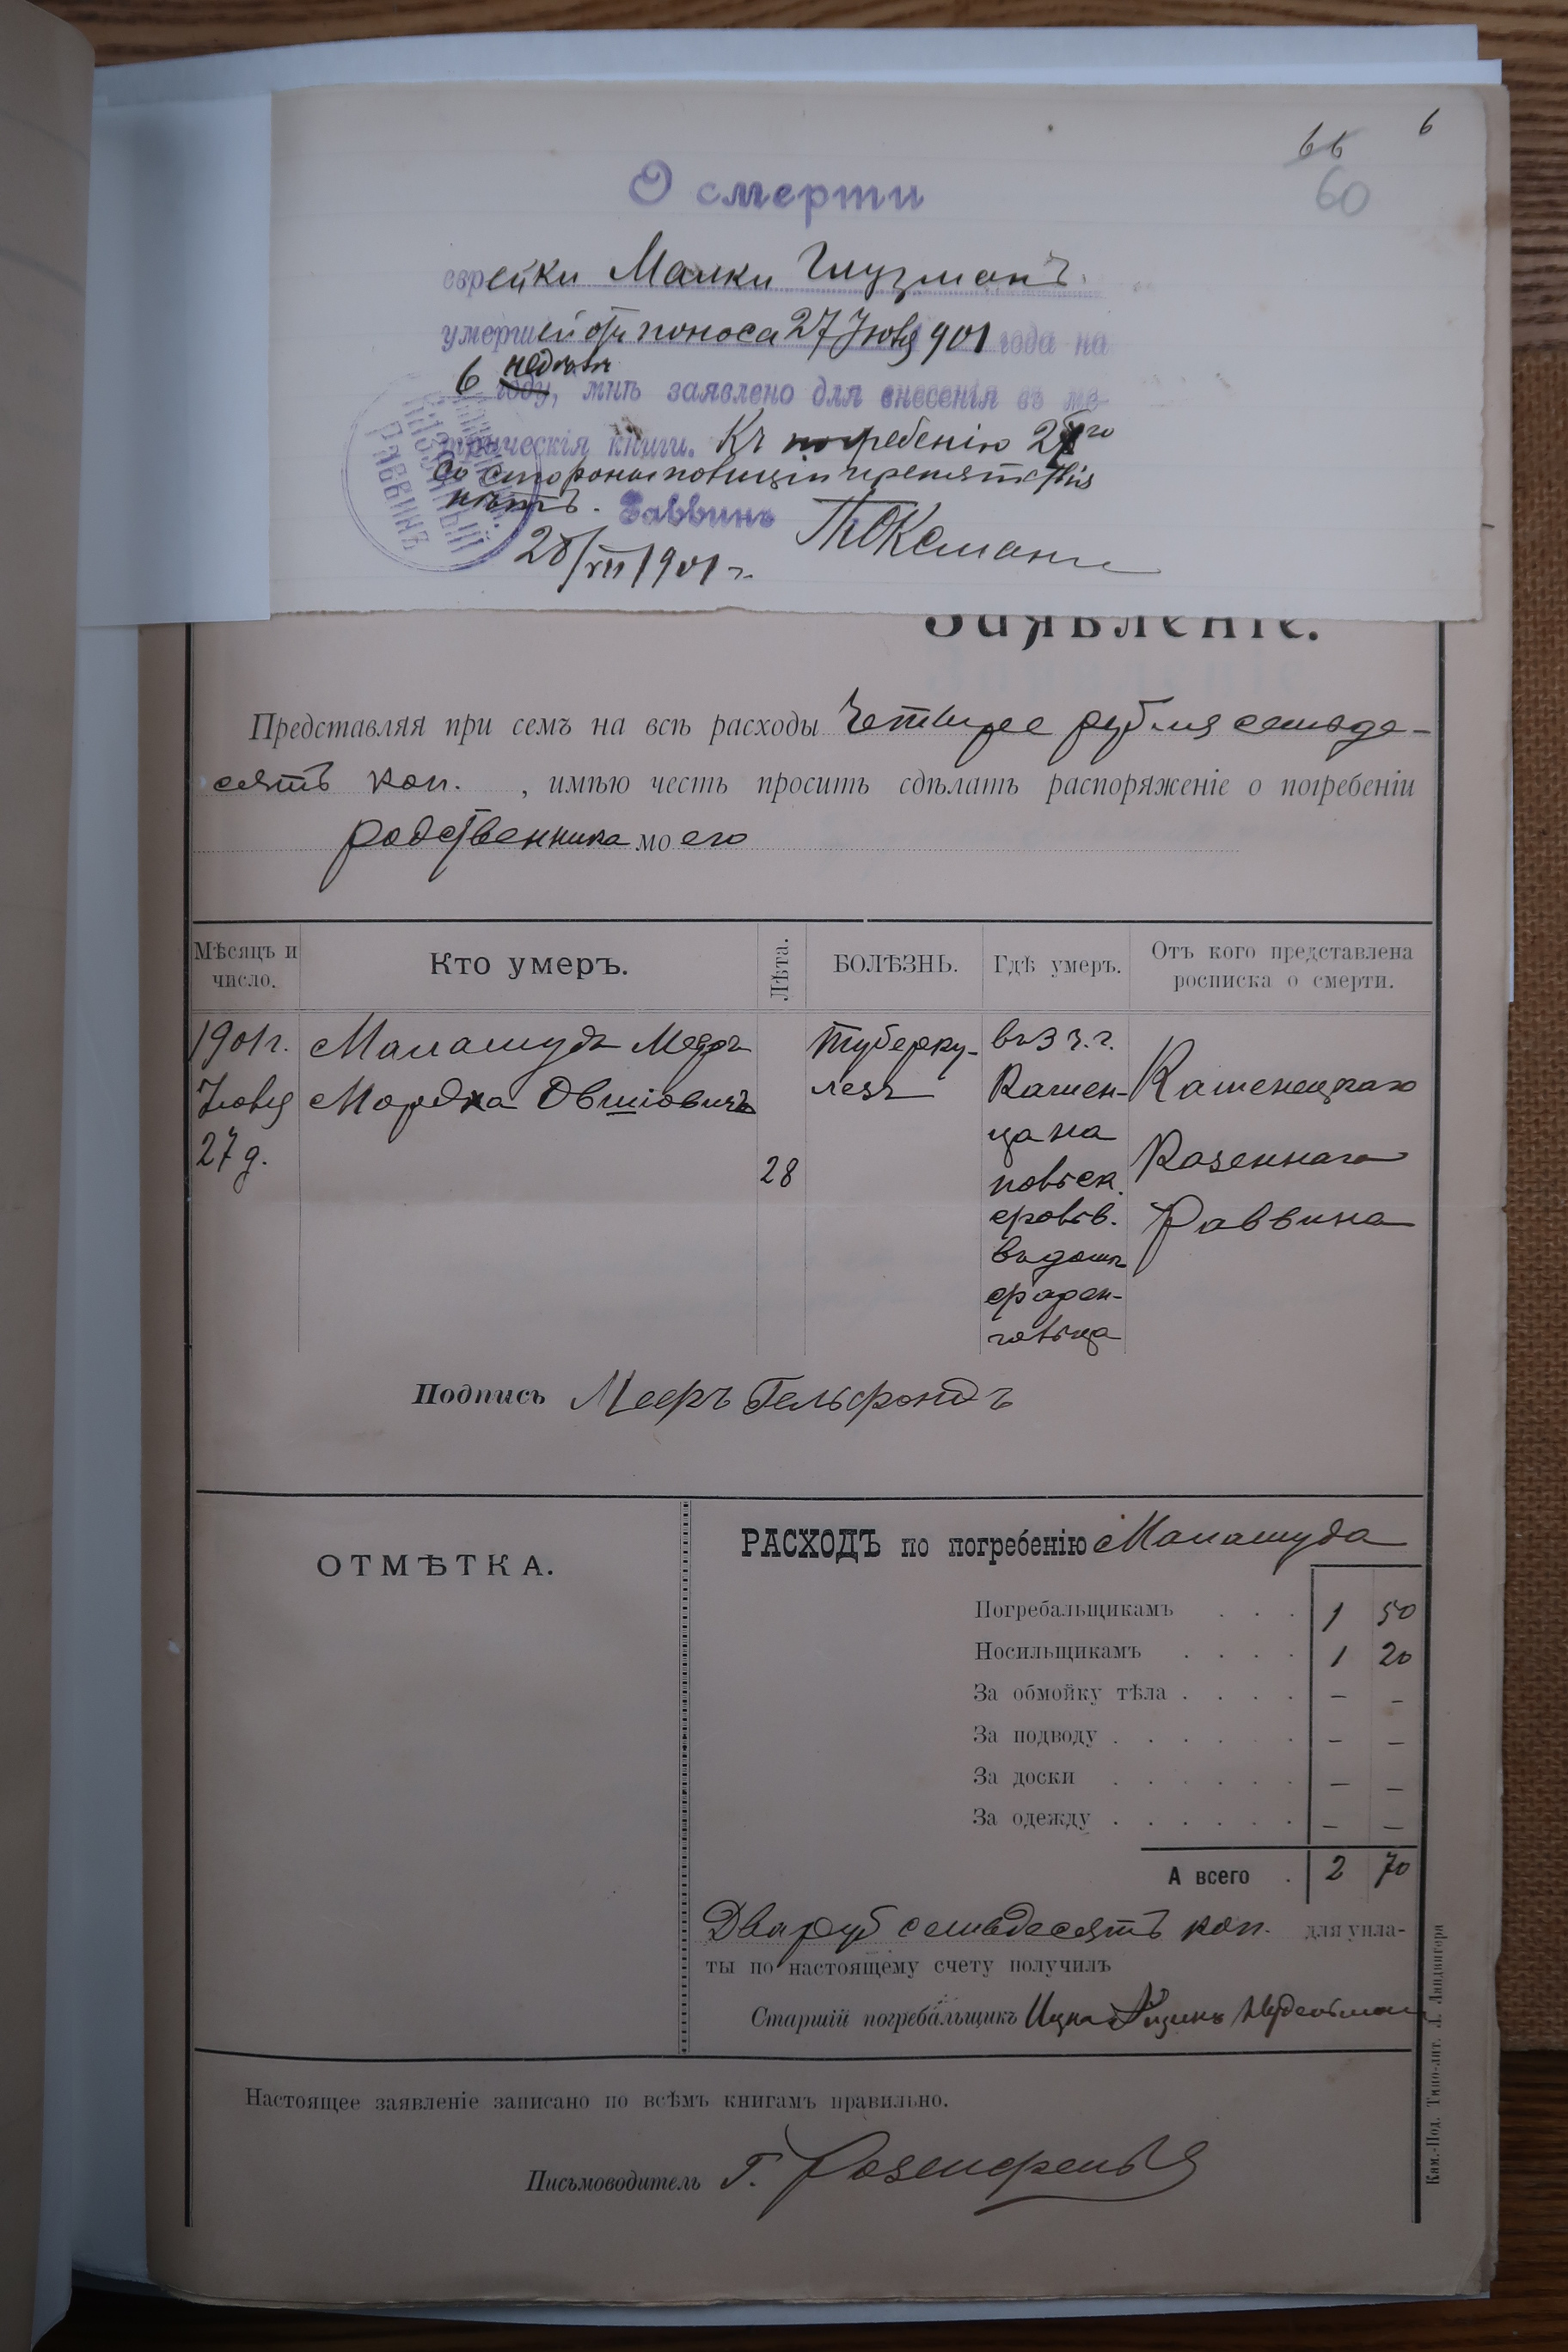 6
66
60
О смерти
еврейки Малки Глузманъ.
умершей отъ поноса 27 Іюля 901 года на
6 недѣлѣ
году, мнѣ заявлено для внесенія въ ме-
трическія книги. Къ погребенію
со стороны полиціи препятствія
нѣтъ. Раввинъ
28/VII 1901 г.
КАЗЕННЫЙ
РАВВИНЪ
Заявленіе.
Представляя при семъ на всѣ расходы Четыре рубля семьде-
сятъ коп. , имѣю честь просить сдѣлать распоряженіе о погребеніи
родственника моего
Мѣсяцъ и число.
Кто умеръ.
Лѣта.
БОЛѢЗНЬ.
Гдѣ умеръ.
Отъ кого представлена росписка о смерти.
1901 г.
Іюля
27 д.
Маламуда Меера
Мордка Овшіовичъ
28
Туберку-
лезъ
въ 3 ч. г.
Камен-
ца на
въ домѣ
Каменецкаго
Казеннаго
Раввина
Подпись Мееръ Гельфондъ
ОТМѢТКА.
РАСХОДЪ по погребенію Маламуда
Погребальщикамъ . . . 1 50
Носильщикамъ . . . . 1 20
За обмойку тѣла . . . . – –
За подводу . . . . . . – –
За доски . . . . . . – –
За одежду . . . . . . – –
А всего . 2 70
Два руб семьдесятъ коп. для упла-
ты по настоящему счету получилъ
Старшій погребальщикъ Ицко
Настоящее заявленіе записано по всѣмъ книгамъ правильно.
Письмоводитель Г. Розенфельд
Кам.-Под. Типо-лит. Л. Ландвигера